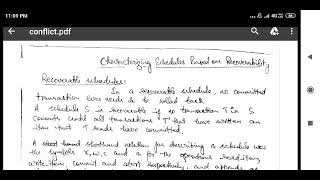 11:09 PM
conflict.pdf
Characterizing Schedules Based on Recoverability
Recoverable schedules:
In a recoverable schedule, no committed
transaction ever needs to be rolled back.
A schedule S is recoverable if no transaction T in S
commits until all transactions T' that have written an
item that T reads have committed.
A short hand notation for describing a schedule uses
the symbols r, w, c and a for the operations read item,
write item, commit and abort respectively, and appends as